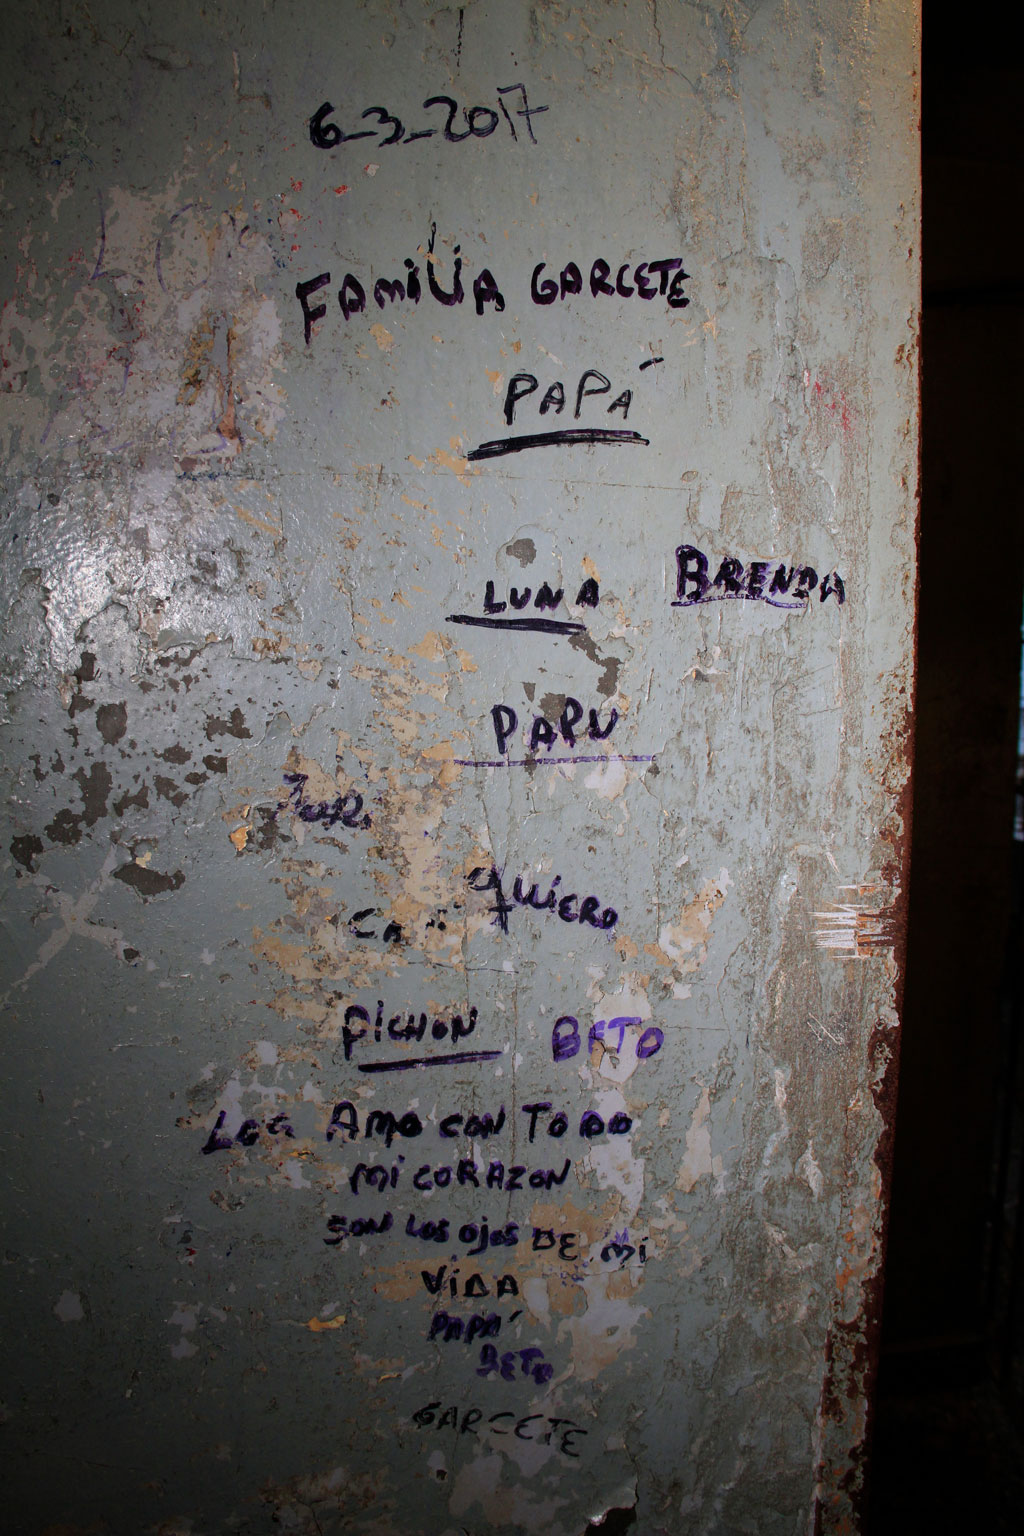 6-3-2017
FAMILIA GARCETE
PAPÁ
LUNA BRENDA
PAPU
QUIERO
PICHON BETO
LOS AMO CON TODO
MI CORAZON
SON LOS OJOS DE MI
VIDA
PAPÁ
BETO
GARCETE